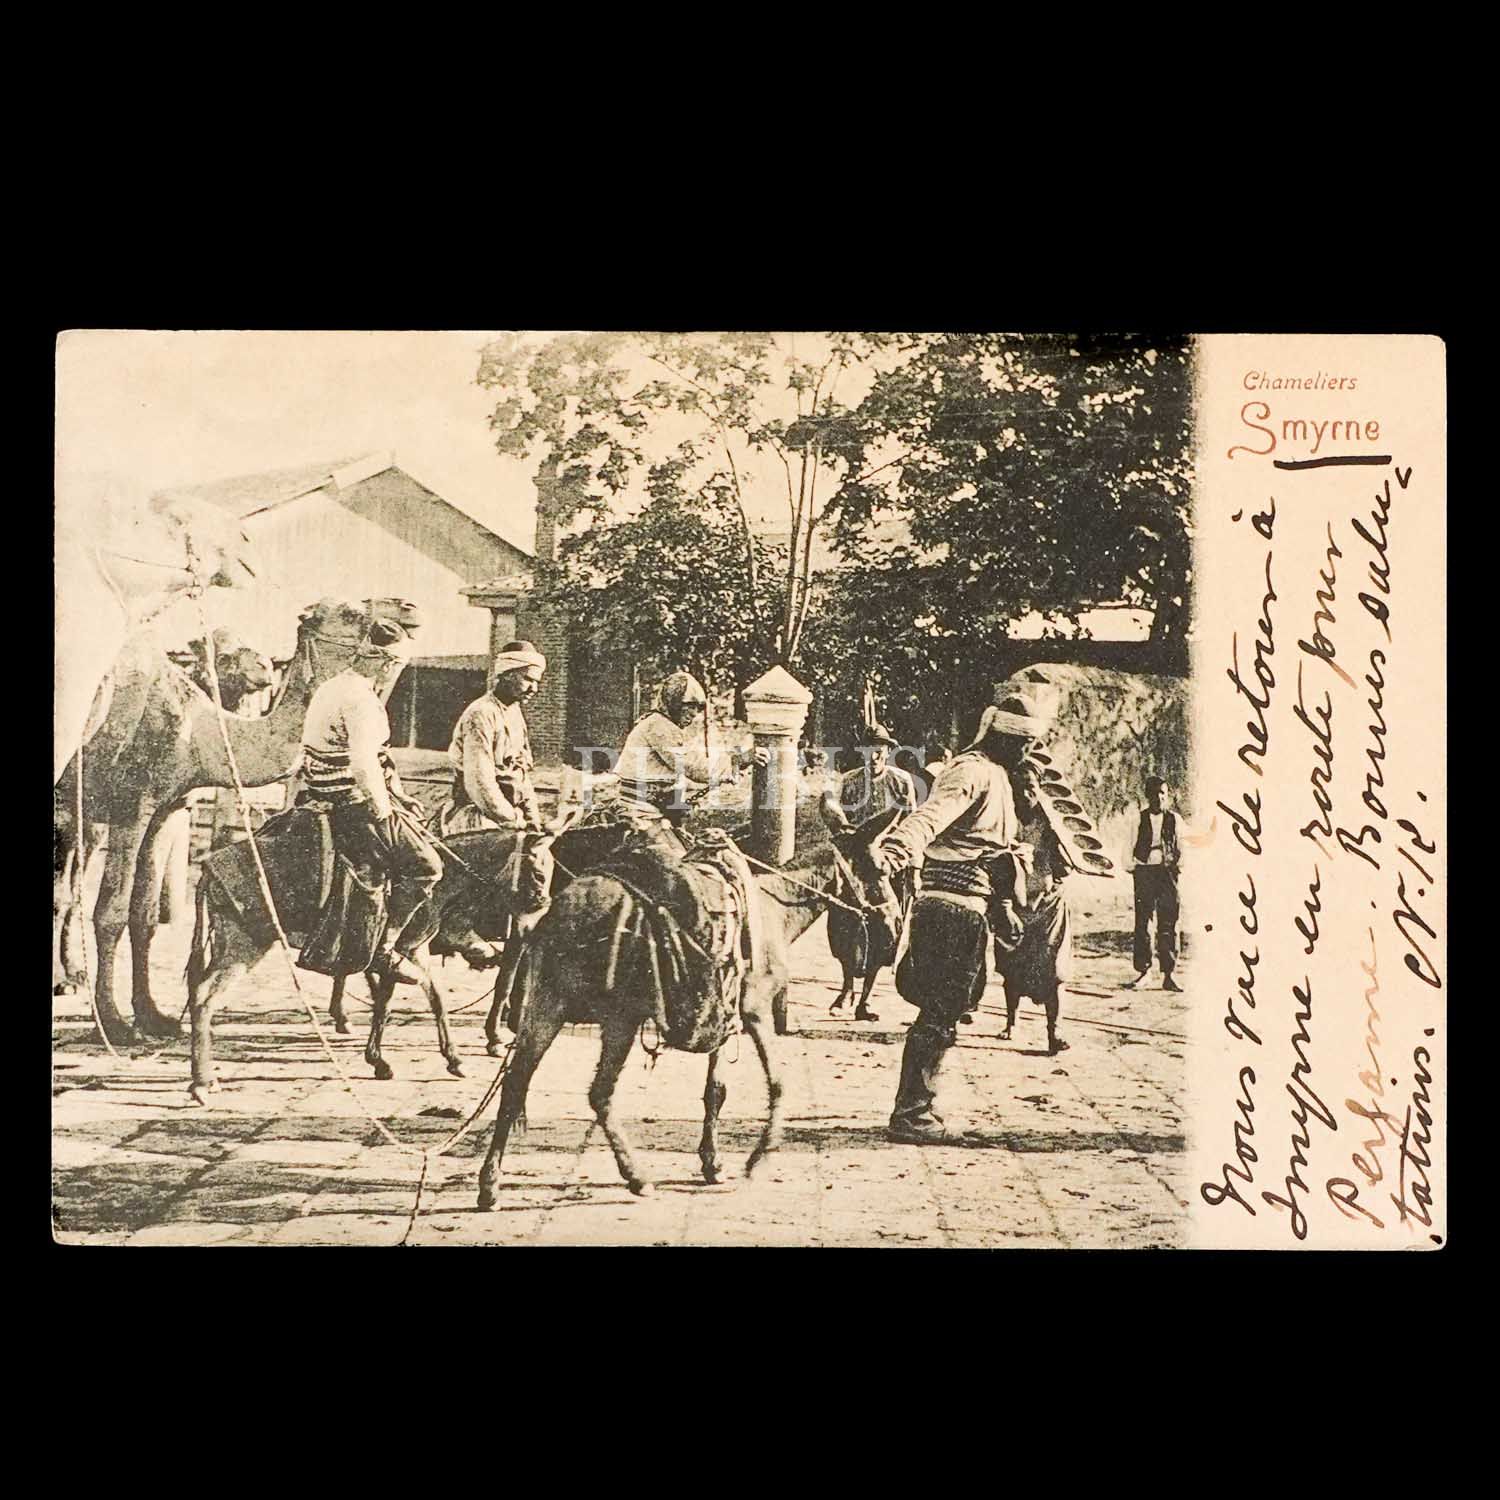 Chameliers
Smyrne
Nous voice de retour à
Smyrne en route pour
Pergame. Bonnes salu-
tations. N.K.
PHEBUS